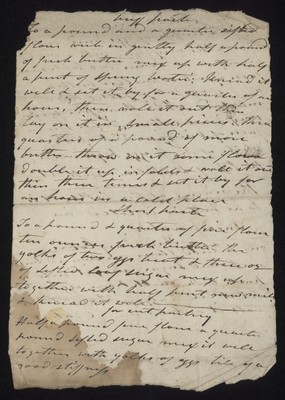 puff paste
To a pound and a quarter sifted
flour rub in gently half a pound
of fresh butter mix up with half
a pint of spring water. Knead it
well & set it by for a quarter of an
hour, then role it out thin
lay on it in small pieces three
quarters of a pound of more
butter throw on it some flour
double it up in folds & role it out
thin three times & set it by for
an hour in a cold place
Short paste
To a pound & quarter of fine flour
ten ounces fresh butter the
yolks of two eggs beat & three oz
of sifted loaf sugar mix up
together with half pint new milk
& knead it well
for cut pastry
Half a pound fine flour a quarter
pound sifted sugar mix it well
together with yolks of eggs till of a
good stiffness